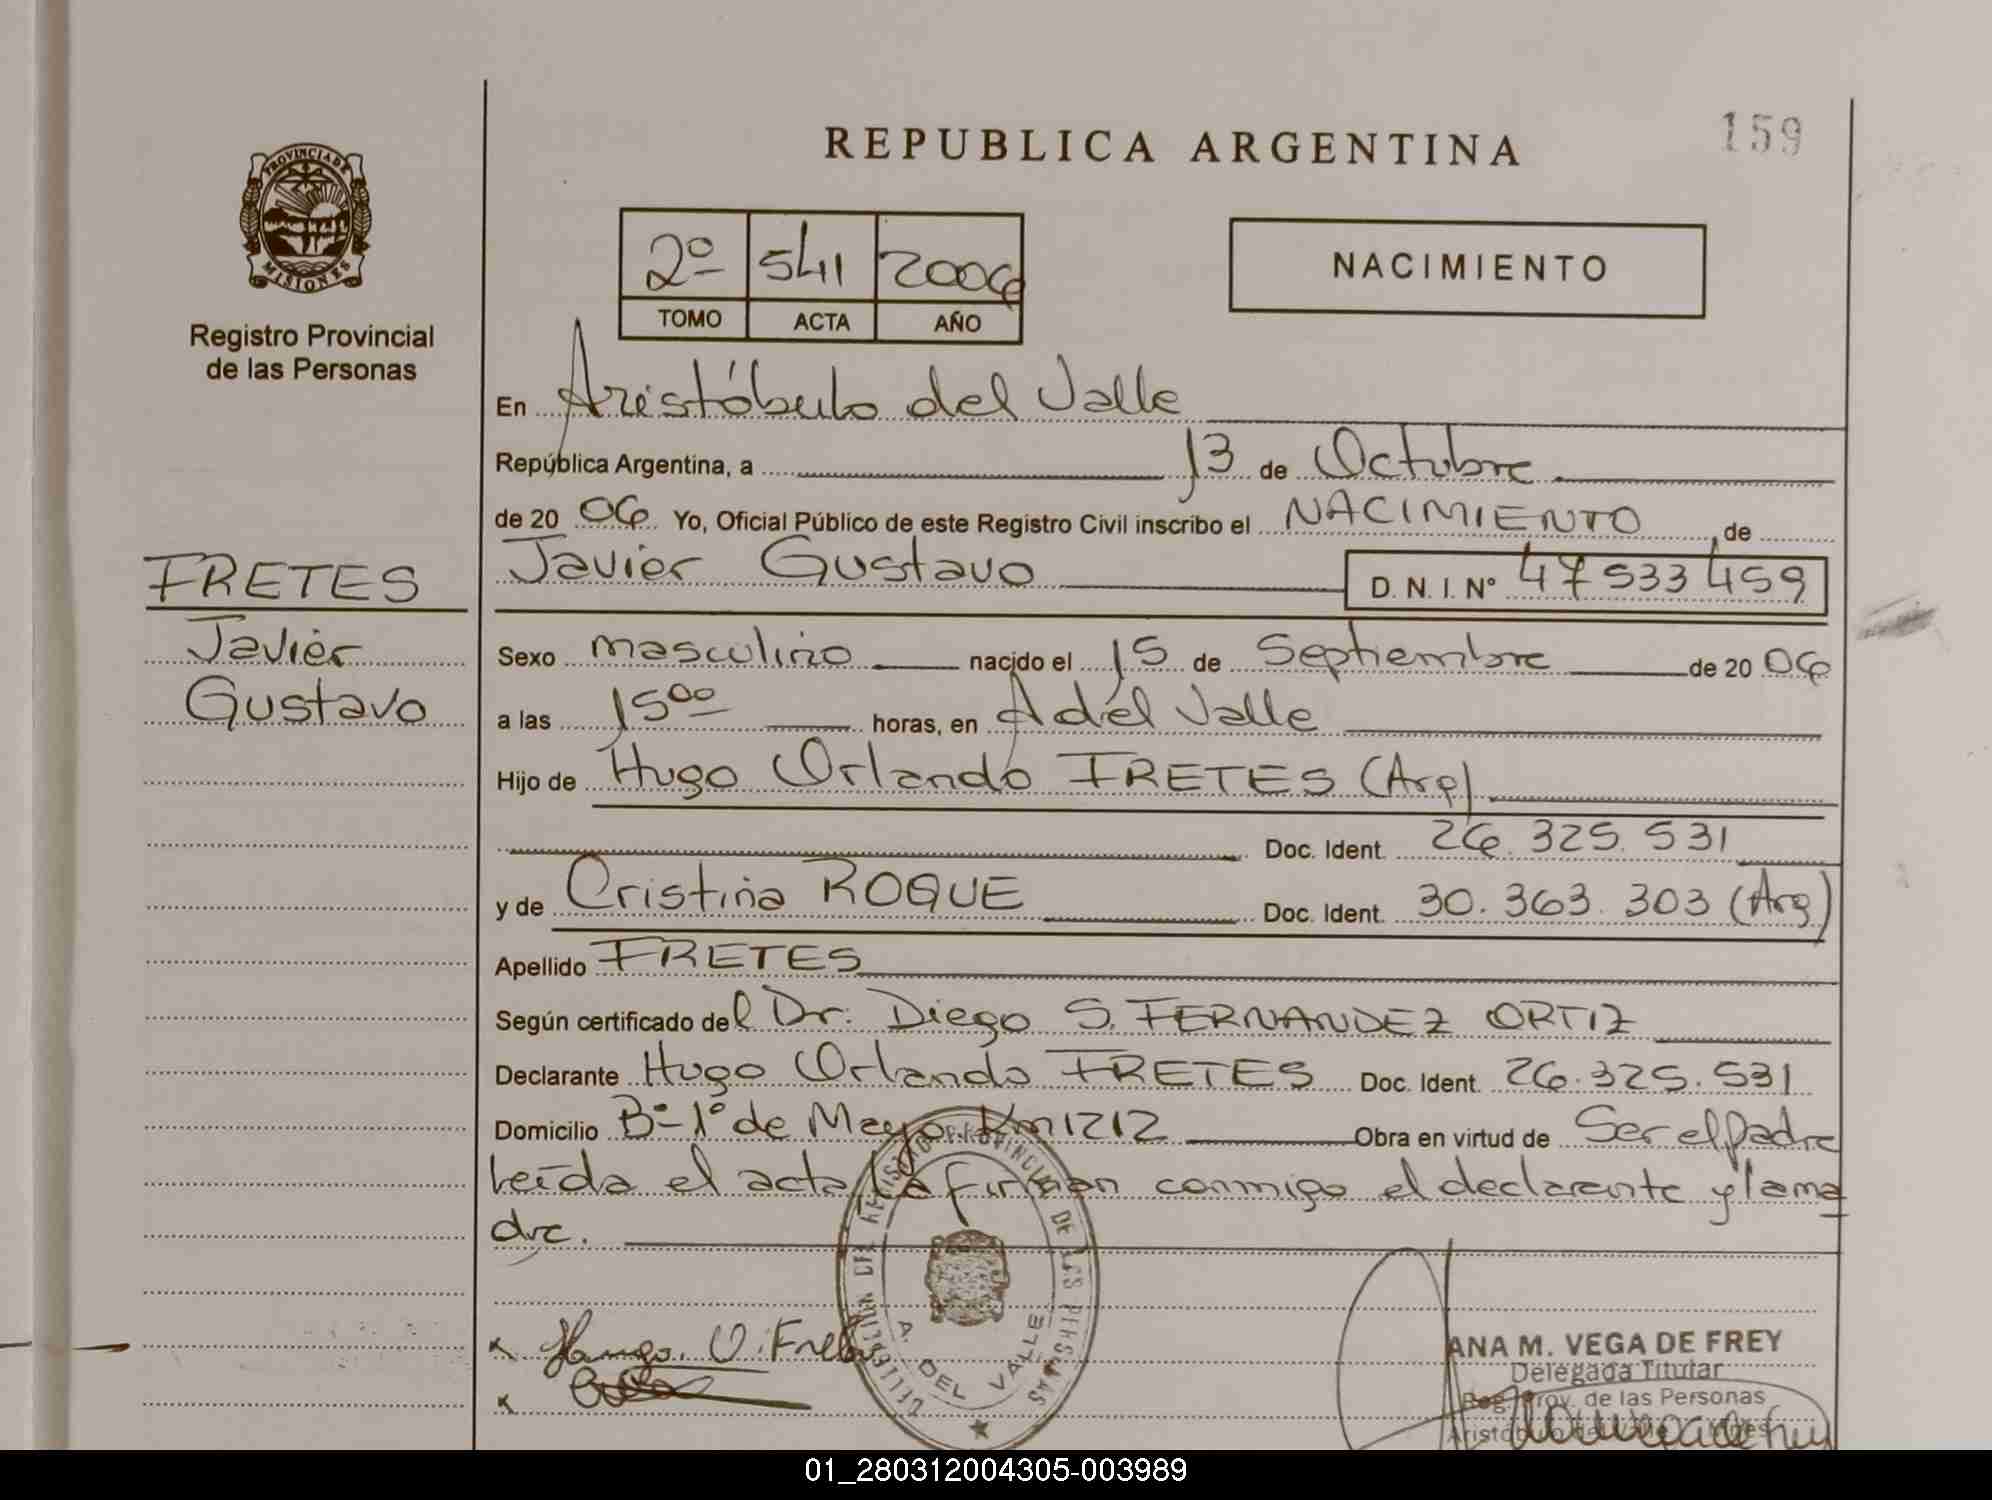 REPUBLICA ARGENTINA
159
PROVINCIA DE
MISIONES
Registro Provincial
de las Personas
2º 541 2006
TOMO ACTA AÑO
NACIMIENTO
En Aristóbulo del Valle
República Argentina, a 13 de Octubre
de 20 06 Yo, Oficial Público de este Registro Civil inscribo el NACIMIENTO de
FRETES
Javier
Gustavo
Javier Gustavo D. N. I. Nº 47533459
Sexo masculino nacido el 15 de Septiembre de 20 06
a las 15 00 horas, en A del Valle
Hijo de Hugo Orlando FRETES (Arg)
Doc. Ident. 26.325.531
y de Cristina ROQUE Doc. Ident. 30.363.303 (Arg)
Apellido FRETES
Según certificado del Dr. Diego S. FERNANDEZ ORTIZ
Declarante Hugo Orlando FRETES Doc. Ident. 26.325.531
Domicilio Bº 1º de Mayo Km 1212 Obra en virtud de Ser el padre
Leída el acta la firman conmigo el declarante y la ma
dre.
A. DEL VALLE
ANA M. VEGA DE FREY
Delegada Titular
Reg. Prov. de las Personas
Aristóbulo del Valle Mnes
01_280312004305-003989